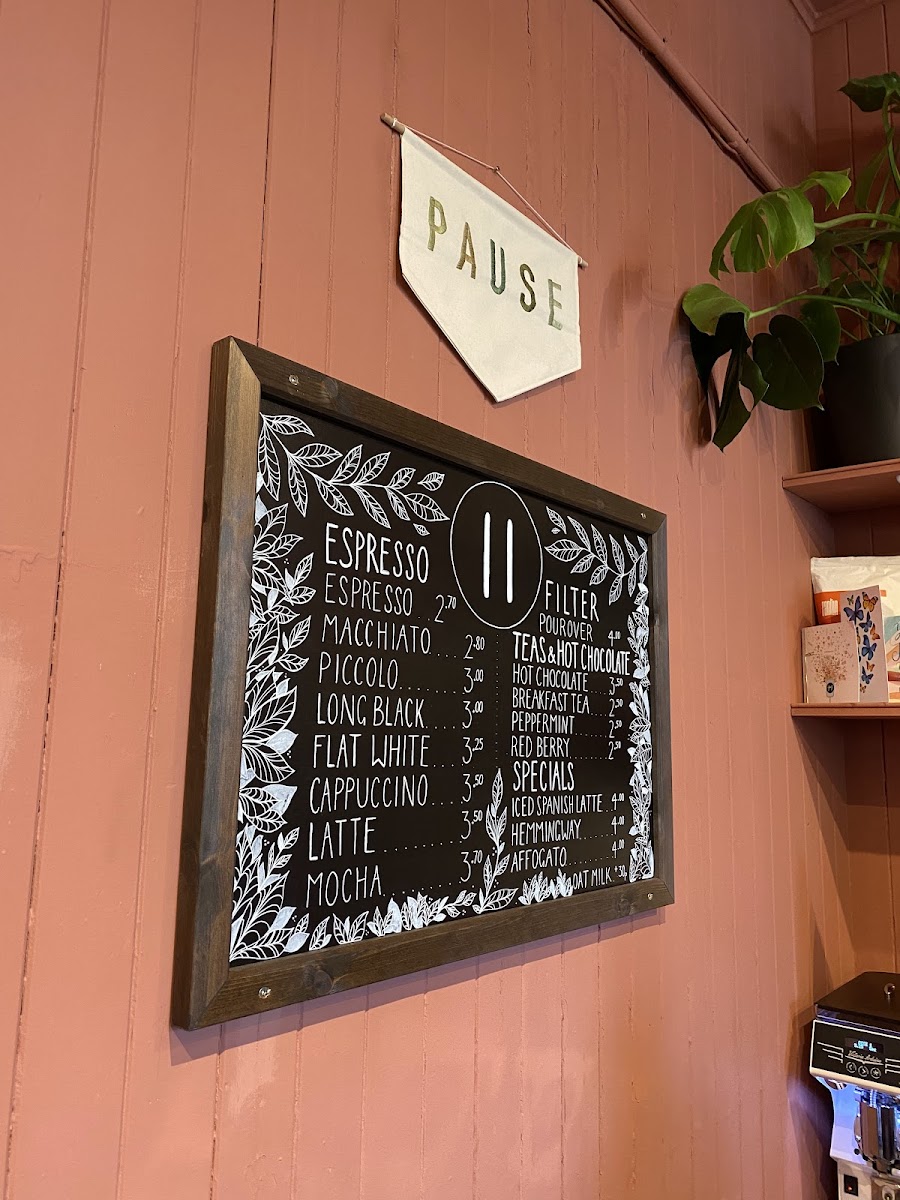 PAUSE
ESPRESSO
ESPRESSO 2.70
MACCHIATO.... 2.80
PICCOLO......... 3.00
LONG BLACK..... 3.00
FLAT WHITE.... 3.25
CAPPUCCINO.... 3.50
LATTE............. 3.50
MOCHA............ 3.70
FILTER
POUROVER 4.00
TEAS & HOT CHOCOLATE
HOT CHOCOLATE.... 3.50
BREAKFAST TEA.... 2.50
PEPPERMINT...... 2.50
RED BERRY....... 2.50
SPECIALS
ICED SPANISH LATTE.. 4.00
HEMMINGWAY...... 4.00
AFFOGATO......... 4.00
OAT MILK +30p
Victoria Arduino